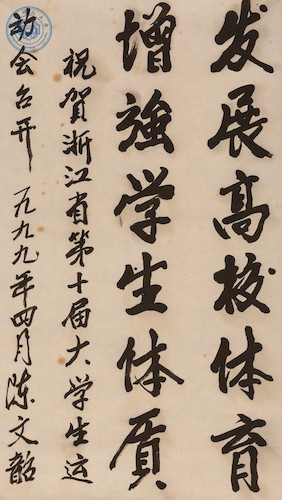 发展高校体育
增強学生体质
祝贺浙江省第十届大学生运
动会召开 一九九九年四月 陈文韶